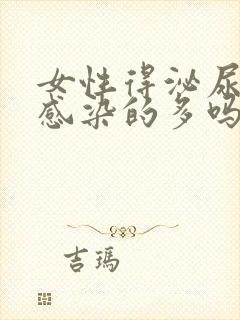 女性得泌尿
感染的多吗
吉瑪